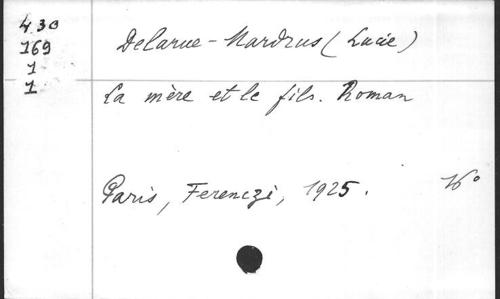 4.30
169
1
1
Delarue-Mardrus (Lucie)
La mère et le fils. Roman
Paris, Ferenczi, 1925. 16°